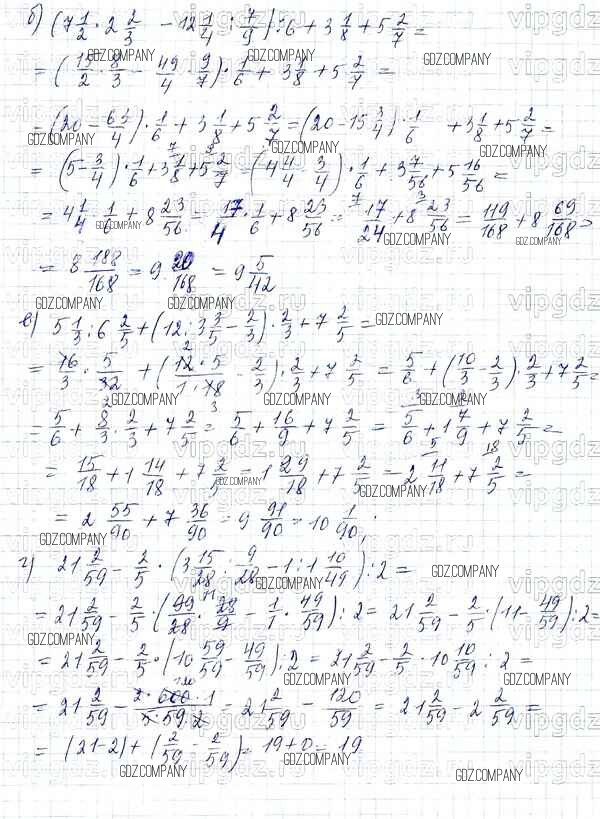 б) (7 1/2 · 2 2/3 - 12 1/4 : 7/9) : 6 + 3 1/8 + 5 2/7 =
= (15/2 · 8/3 - 49/4 · 9/7) · 1/6 + 3 1/8 + 5 2/7 =
= (20 - 63/4) · 1/6 + 3 1/8 + 5 2/7 = (20 - 15 3/4) · 1/6 + 3 1/8 + 5 2/7 =
= (5 - 3/4) · 1/6 + 3 1/8 + 5 2/7 = (4 4/4 - 3/4) · 1/6 + 3 7/56 + 5 16/56 =
= 4 1/4 · 1/6 + 8 23/56 = 17/4 · 1/6 + 8 23/56 = 17/24 + 8 23/56 = 119/168 + 8 69/168 =
= 8 188/168 = 9 20/168 = 9 5/42
в) 5 1/3 : 6 2/5 + (12 : 3 3/5 - 2/3) · 2/3 + 7 2/5 =
= 16/3 · 5/32 + (12 · 5/1 · 18 - 2/3) · 2/3 + 7 2/5 = 5/6 + (10/3 - 2/3) · 2/3 + 7 2/5 =
= 5/6 + 8/3 · 2/3 + 7 2/5 = 5/6 + 16/9 + 7 2/5 = 5/6 + 1 7/9 + 7 2/5 =
= 15/18 + 1 14/18 + 7 2/5 = 1 29/18 + 7 2/5 = 2 11/18 + 7 2/5 =
= 2 55/90 + 7 36/90 = 9 91/90 = 10 1/90;
г) 21 2/59 - 2/5 · (3 15/28 : 9/28 - 1 : 1 10/49) : 2 =
= 21 2/59 - 2/5 · (99/28 · 28/9 - 1/1 · 49/59) : 2 = 21 2/59 - 2/5 · (11 - 49/59) : 2 =
= 21 2/59 - 2/5 · (10 59/59 - 49/59) : 2 = 21 2/59 - 2/5 · 10 10/59 : 2 =
= 21 2/59 - 2 · 600 · 1/5 · 59 · 2 = 21 2/59 - 120/59 = 21 2/59 - 2 2/59 =
= (21 - 2) + (2/59 - 2/59) = 19 + 0 = 19